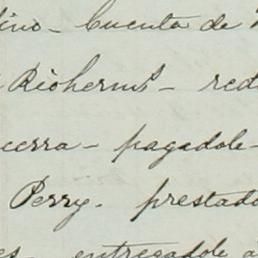 ino_ Cuenta de
Rioherms_ red
cerra_ pagadole_
Perry. prestado
es_ entregadole a